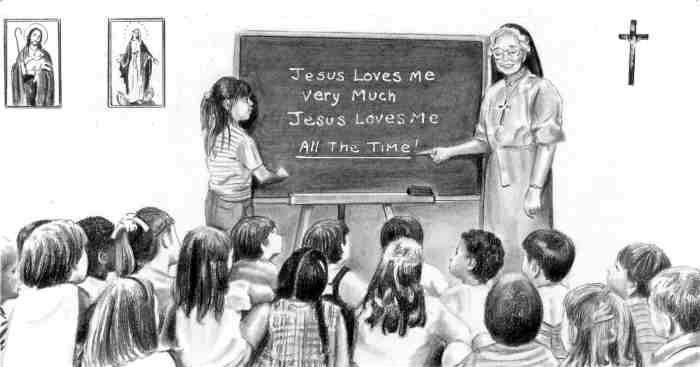 Jesus Loves me
very Much
Jesus Loves Me
All The Time!